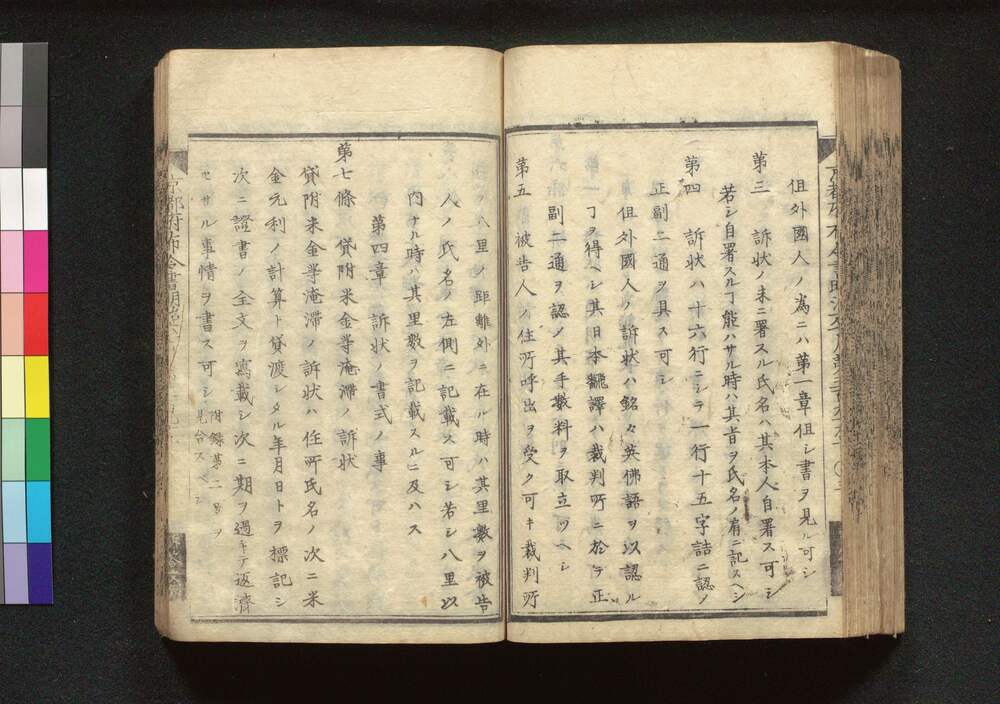 但外國人ノ為ニハ第一章但シ書ヲ見ル可シ
第三 訴状ノ末ニ署スル氏名ハ其本人自署ス可シ
若シ自署スル丁能ハサル時ハ其旨ヲ氏名ノ肩ニ記スヘシ
第四 訴状ハ十六行ニシテ一行十五字詰ニ認メ
正副二通ヲ具ス可シ
但外國人ノ訴状ハ銘々英佛語ヲ以認ル
丁ヲ得ヘシ其日本飜譯ハ裁判所ニ於テ正
副二通ヲ認メ其手數料ヲ取立ツヘシ
第五 被告人ノ住所呼出ヲ受ク可キ裁判所
ヲ八里ノ距離外ニ在ル時ハ其里數ヲ被告
人ノ氏名ノ左側ニ記載ス可シ若シ八里以
内ナル時ハ其里數ヲ記載スルニ及ハス
第四章 訴状ノ書式ノ事
第七條 貸附米金等淹滯ノ訴状
貸附米金等淹滯ノ訴状ハ住所氏名ノ次ニ米
金元利ノ計算ト貸渡シタル年月日トヲ標記シ
次ニ證書ノ全文ヲ寫載シ次ニ期ヲ過キテ返濟
セサル事情ヲ書ス可シ 附録第二号ヲ
見合スヘシ